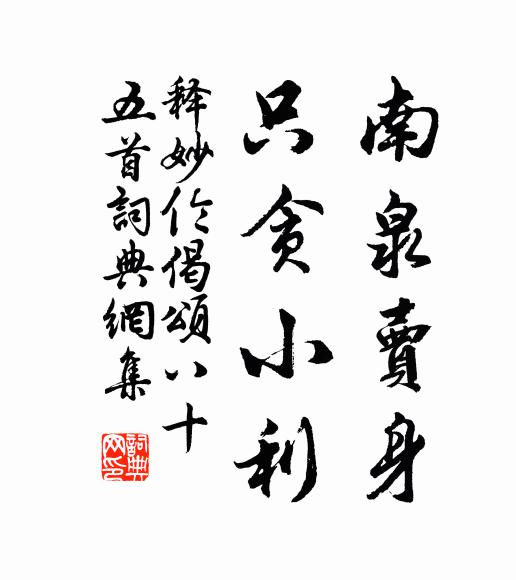 南泉賣身
只貪小利
释妙伦偈頌八十
五首詞典網集
詞典
网印